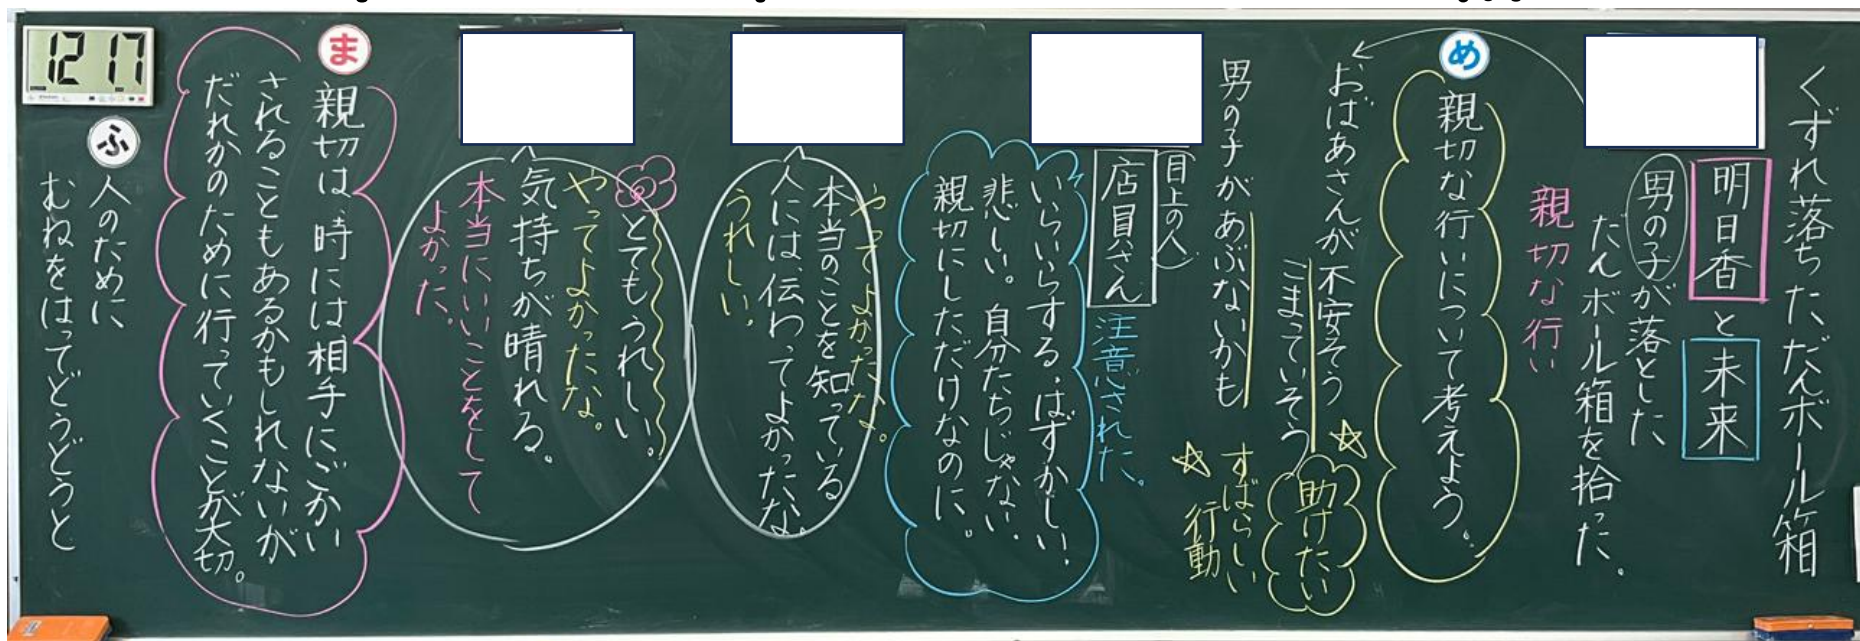 くずれ落ちただんボール箱
明日香と未来
男の子が落とした
だんボール箱を拾った。
親切な行い
め
親切な行いについて考えよう。
おばあさんが不安そう
こまっていそう
助けたい
男の子があぶないかも
すばらしい
行動
(目上の人)
店員さん
注意された。
いらいらする。はずかしい。
悲しい。自分たちじゃない。
親切にしただけなのに。
やってよかったな。
本当のことを知っている
人には、伝わってよかったな。
うれしい。
とてもうれしい。
やってよかったな。
気持ちが晴れる。
本当にいいことをして
よかった。
ま
親切は、時には相手にごかい
されることもあるかもしれないが
だれかのために行っていくことが大切。
12 17
ふ
人のために
むねをはってどうどうと